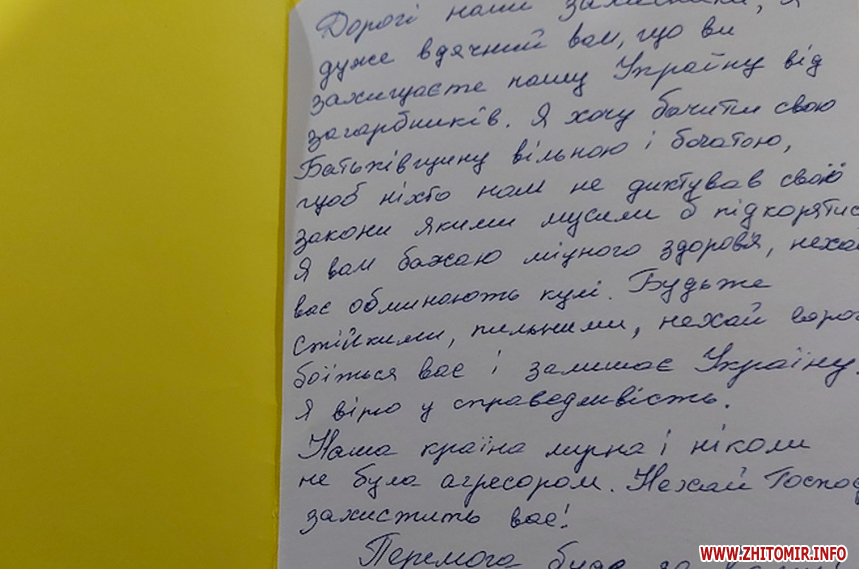 Дорогі наши захисники, я
дуже вдячний вам, що ви
захищаєте нашу Україну від
загарбників. Я хочу бачити свою
Батьківщину вільною і богатою,
щоб ніхто нам не диктував свої
закони якими мусили б підкорятись
Я вам бажаю міцного здоров'я, нехай
вас обминають кулі. Будьже
стійкими, пильними, нехай ворог
боїться вас і залишає Україну.
Я вірю у справедливість.
Наша країна мирна і ніколи
не була агресором. Нехай Господ
захистить вас!
Перемога буде за
WWW.ZHITOMIR.INFO